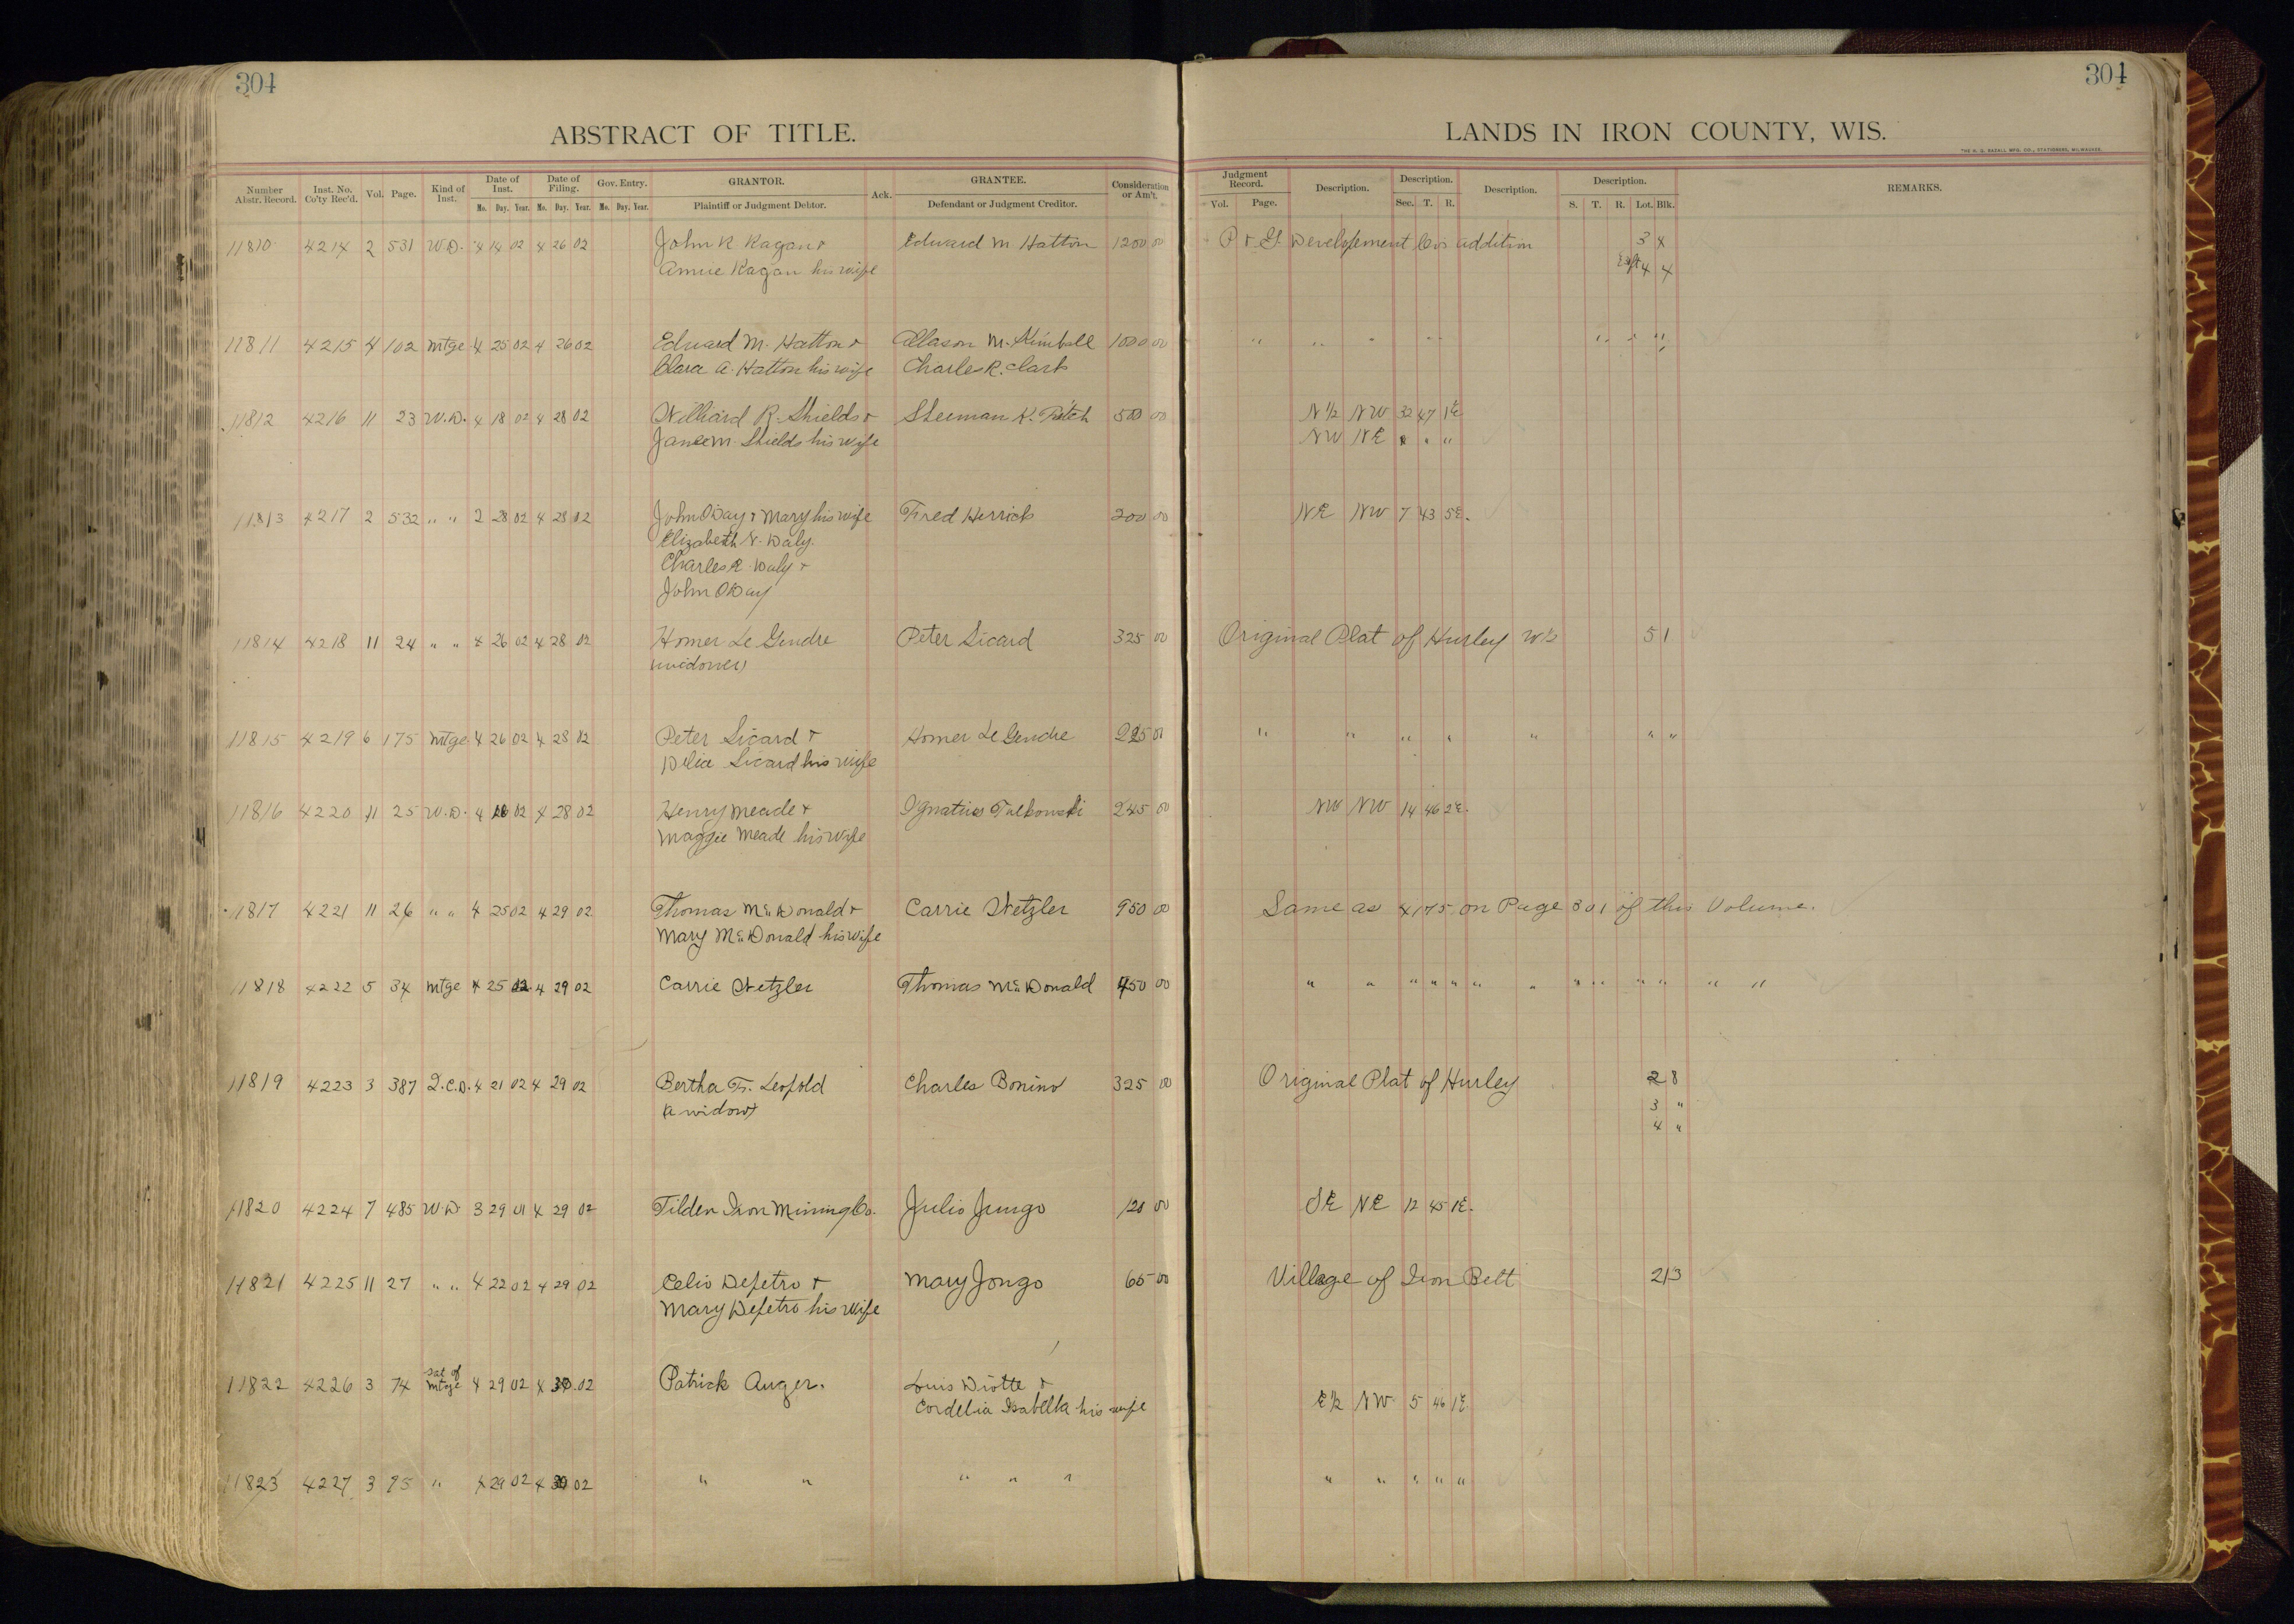 304
304
ABSTRACT OF TITLE.
LANDS IN IRON COUNTY, WIS.
THE H. G. RAZALL MFG. CO., STATIONERS, MILWAUKEE.
Number Abstr. Record. Inst. No. Co'ty Rec'd. Vol. Page. Kind of Inst. Date of Inst. Mo. Day. Year. Date of Filing. Mo. Day. Year. Gov. Entry. Mo. Day. Year. GRANTOR. Plaintiff or Judgment Debtor. Ack. GRANTEE. Defendant or Judgment Creditor. Consideration or Am't. Judgment Record. Vol. Page. Description. Description. Sec. T. R. Description. Description. S. T. R. Lot. Blk. REMARKS.
11810 4214 2 531 W.D. 4 14 02 4 26 02 John R Kagan & Edward M Hatton 1200 00 P & G. Development Co's addition 3 4
Annie Kagan his wife 4 4
11811 4215 4 102 Mtge 4 25 02 4 26 02 Edward M. Hatton & Allason M. Kimball 1000 00 " " " " " " "
Clara A. Hatton his wife Charles R. Clark
11812 4216 11 23 W.D. 4 18 02 4 28 02 Williard R. Shields & K. Fitch 500 00 N 1/2 NW 32 47 1E
Jane M. Shields his wife NW NE " " "
11813 4217 2 532 " " 2 28 02 4 28 02 John O'Day & Mary his wife Fred Herrick 200 00 NE NW 7 43 5E.
Elizabeth N. Daly.
Charles R. Daly &
John O'Day
11814 4218 11 24 " " 4 26 02 4 28 02 Homer Le Gendre Peter Sicard 325 00 Original Plat of Hurley W 1/2 5 1
(widower)
11815 4219 6 175 Mtge 4 26 02 4 28 02 Peter Sicard & Homer Le Gendre 225 00 " " " " " " "
Delia Sicard his wife
11816 4220 11 25 W.D. 4 02 4 28 02 Henry Meade & Ignatius 245 00 NW NW 14 46 2E.
Maggie Meade his wife
11817 4221 11 26 " " 4 25 02 4 29 02 Thomas McDonald & Carrie Stetzler 950 00 Same as 4175 on Page 301 of this Volume.
Mary McDonald his wife
11818 4222 5 34 Mtge 4 25 02 4 29 02 Carrie Stetzler Thomas McDonald 450 00 " " " " " " " " " " " " " "
11819 4223 3 387 Q.C.D. 4 21 02 4 29 02 Bertha F. Leopold Charles Bonino 325 00 Original Plat of Hurley 2 8
(a widow) 3 "
4 "
11820 4224 7 485 W.D. 3 29 01 4 29 02 Tilden Iron Mining Co. Julio Jungo 120 00 SE NE 12 45 1E.
11821 4225 11 27 " " 4 22 02 4 29 02 Celio Depetro & Mary Jongo 65 00 Village of Iron Belt 2 13
Mary Depetro his wife
11822 4226 3 74 Sat of Mtge 4 29 02 4 30 02 Patrick Auger. Louis Diotte &
Cordelia Isabella his wife E 1/2 NW 5 46 1E
11823 4227 3 75 " 4 29 02 4 30 02 " " " " " " " " " "